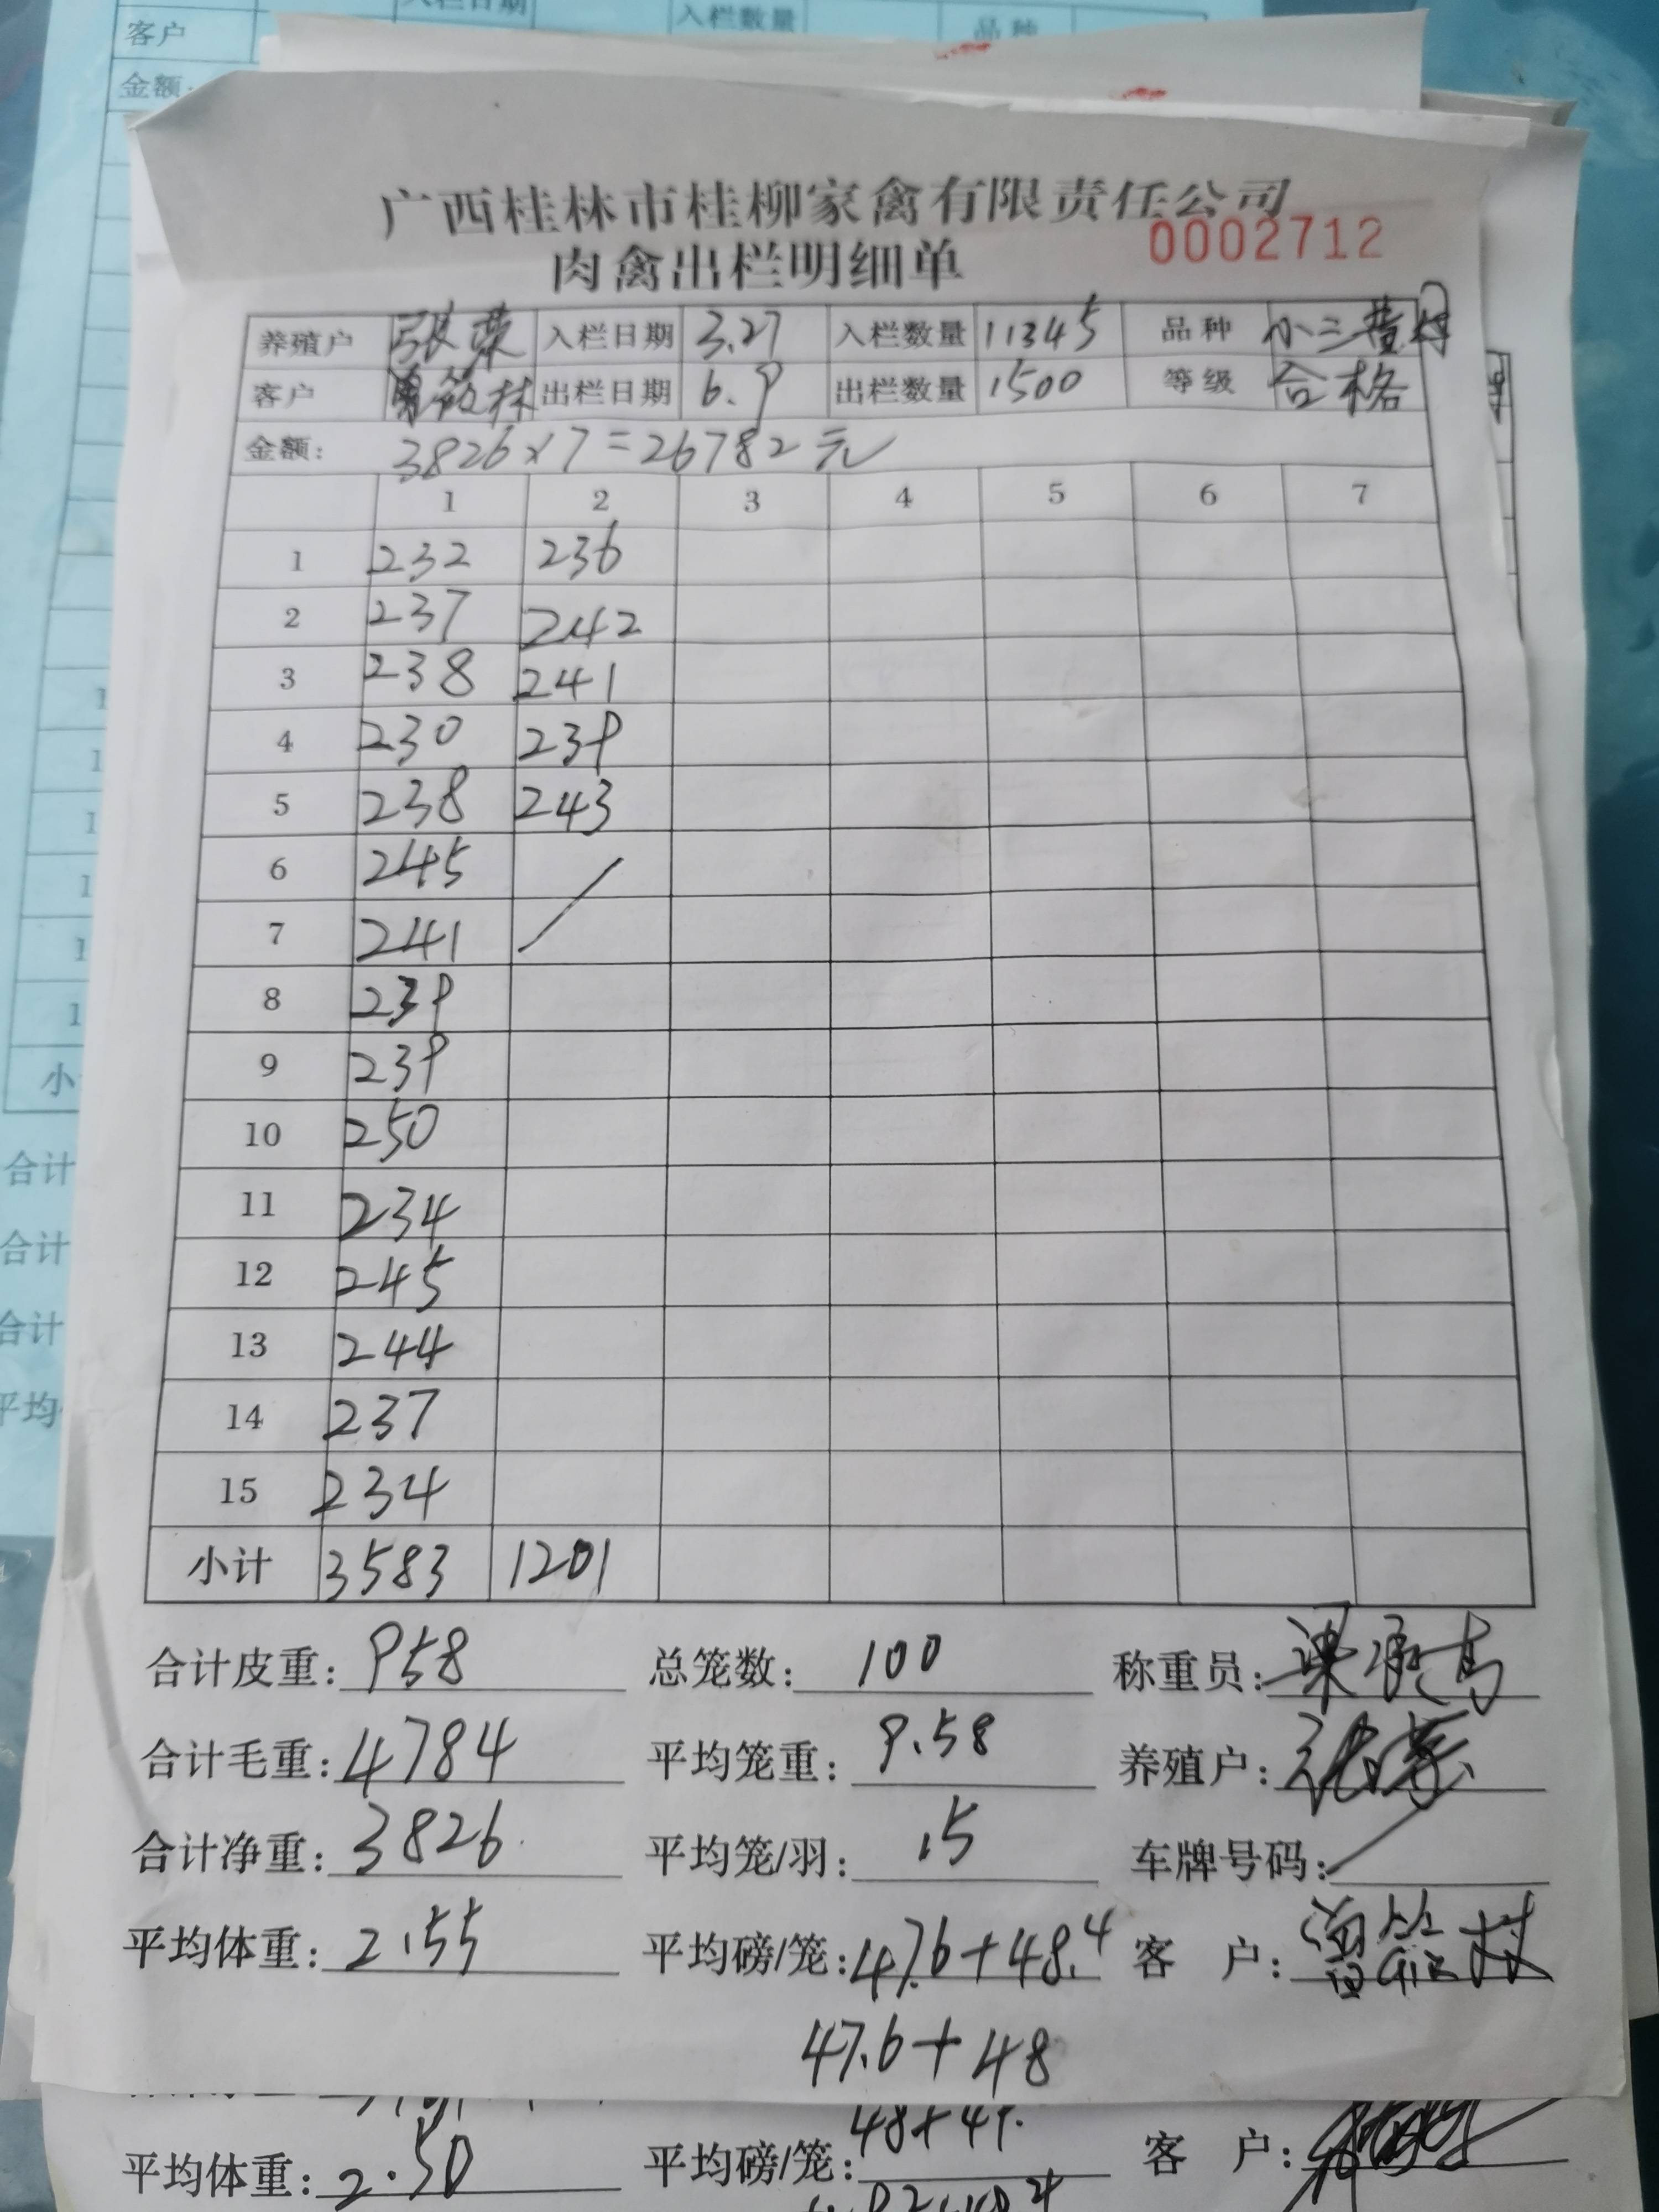 入栏日期 入栏数量 品种
客户
金额:
广西桂林市桂柳家禽有限责任公司
肉禽出栏明细单 0002712
养殖户 张荣 入栏日期 3.27 入栏数量 11345 品种 小三黄
客户 出栏日期 6.9 出栏数量 1500 等级 合格
金额: 3826×7=26782元
1 2 3 4 5 6 7
1 232 236
2 237 242
3 238 241
4 230 239
5 238 243
6 245
7 241
8 239
9 239
10 250
11 234
12 245
13 244
14 237
15 234
小计 3583 1201
合计皮重: 958 总笼数: 100 称重员:
合计毛重: 4784 平均笼重: 9.58 养殖户: 张荣
合计净重: 3826 平均笼/羽: 15 车牌号码:
平均体重: 2.55 平均磅/笼: 47.6+48.4 客 户:
47.6+48
平均体重: 2.50 平均磅/笼: 客 户:
小
合计
合计
合计
平均